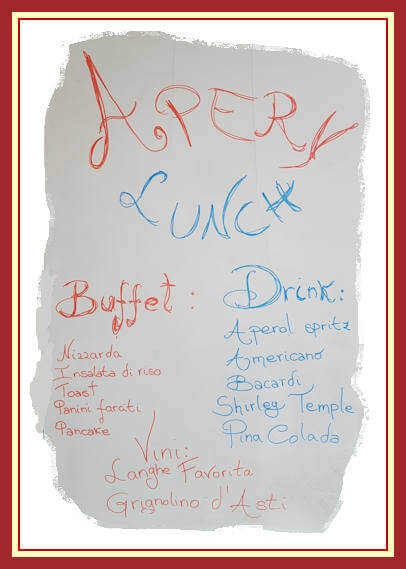 APERY
LUNCH
Buffet:
Nizzarda
Insalata di riso
Toast
Panini farciti
Pancake
Drink:
Aperol spritz
Americano
Bacardi
Shirley Temple
Pina Colada
Vini:
Langhe Favorita
Grignolino d'Asti